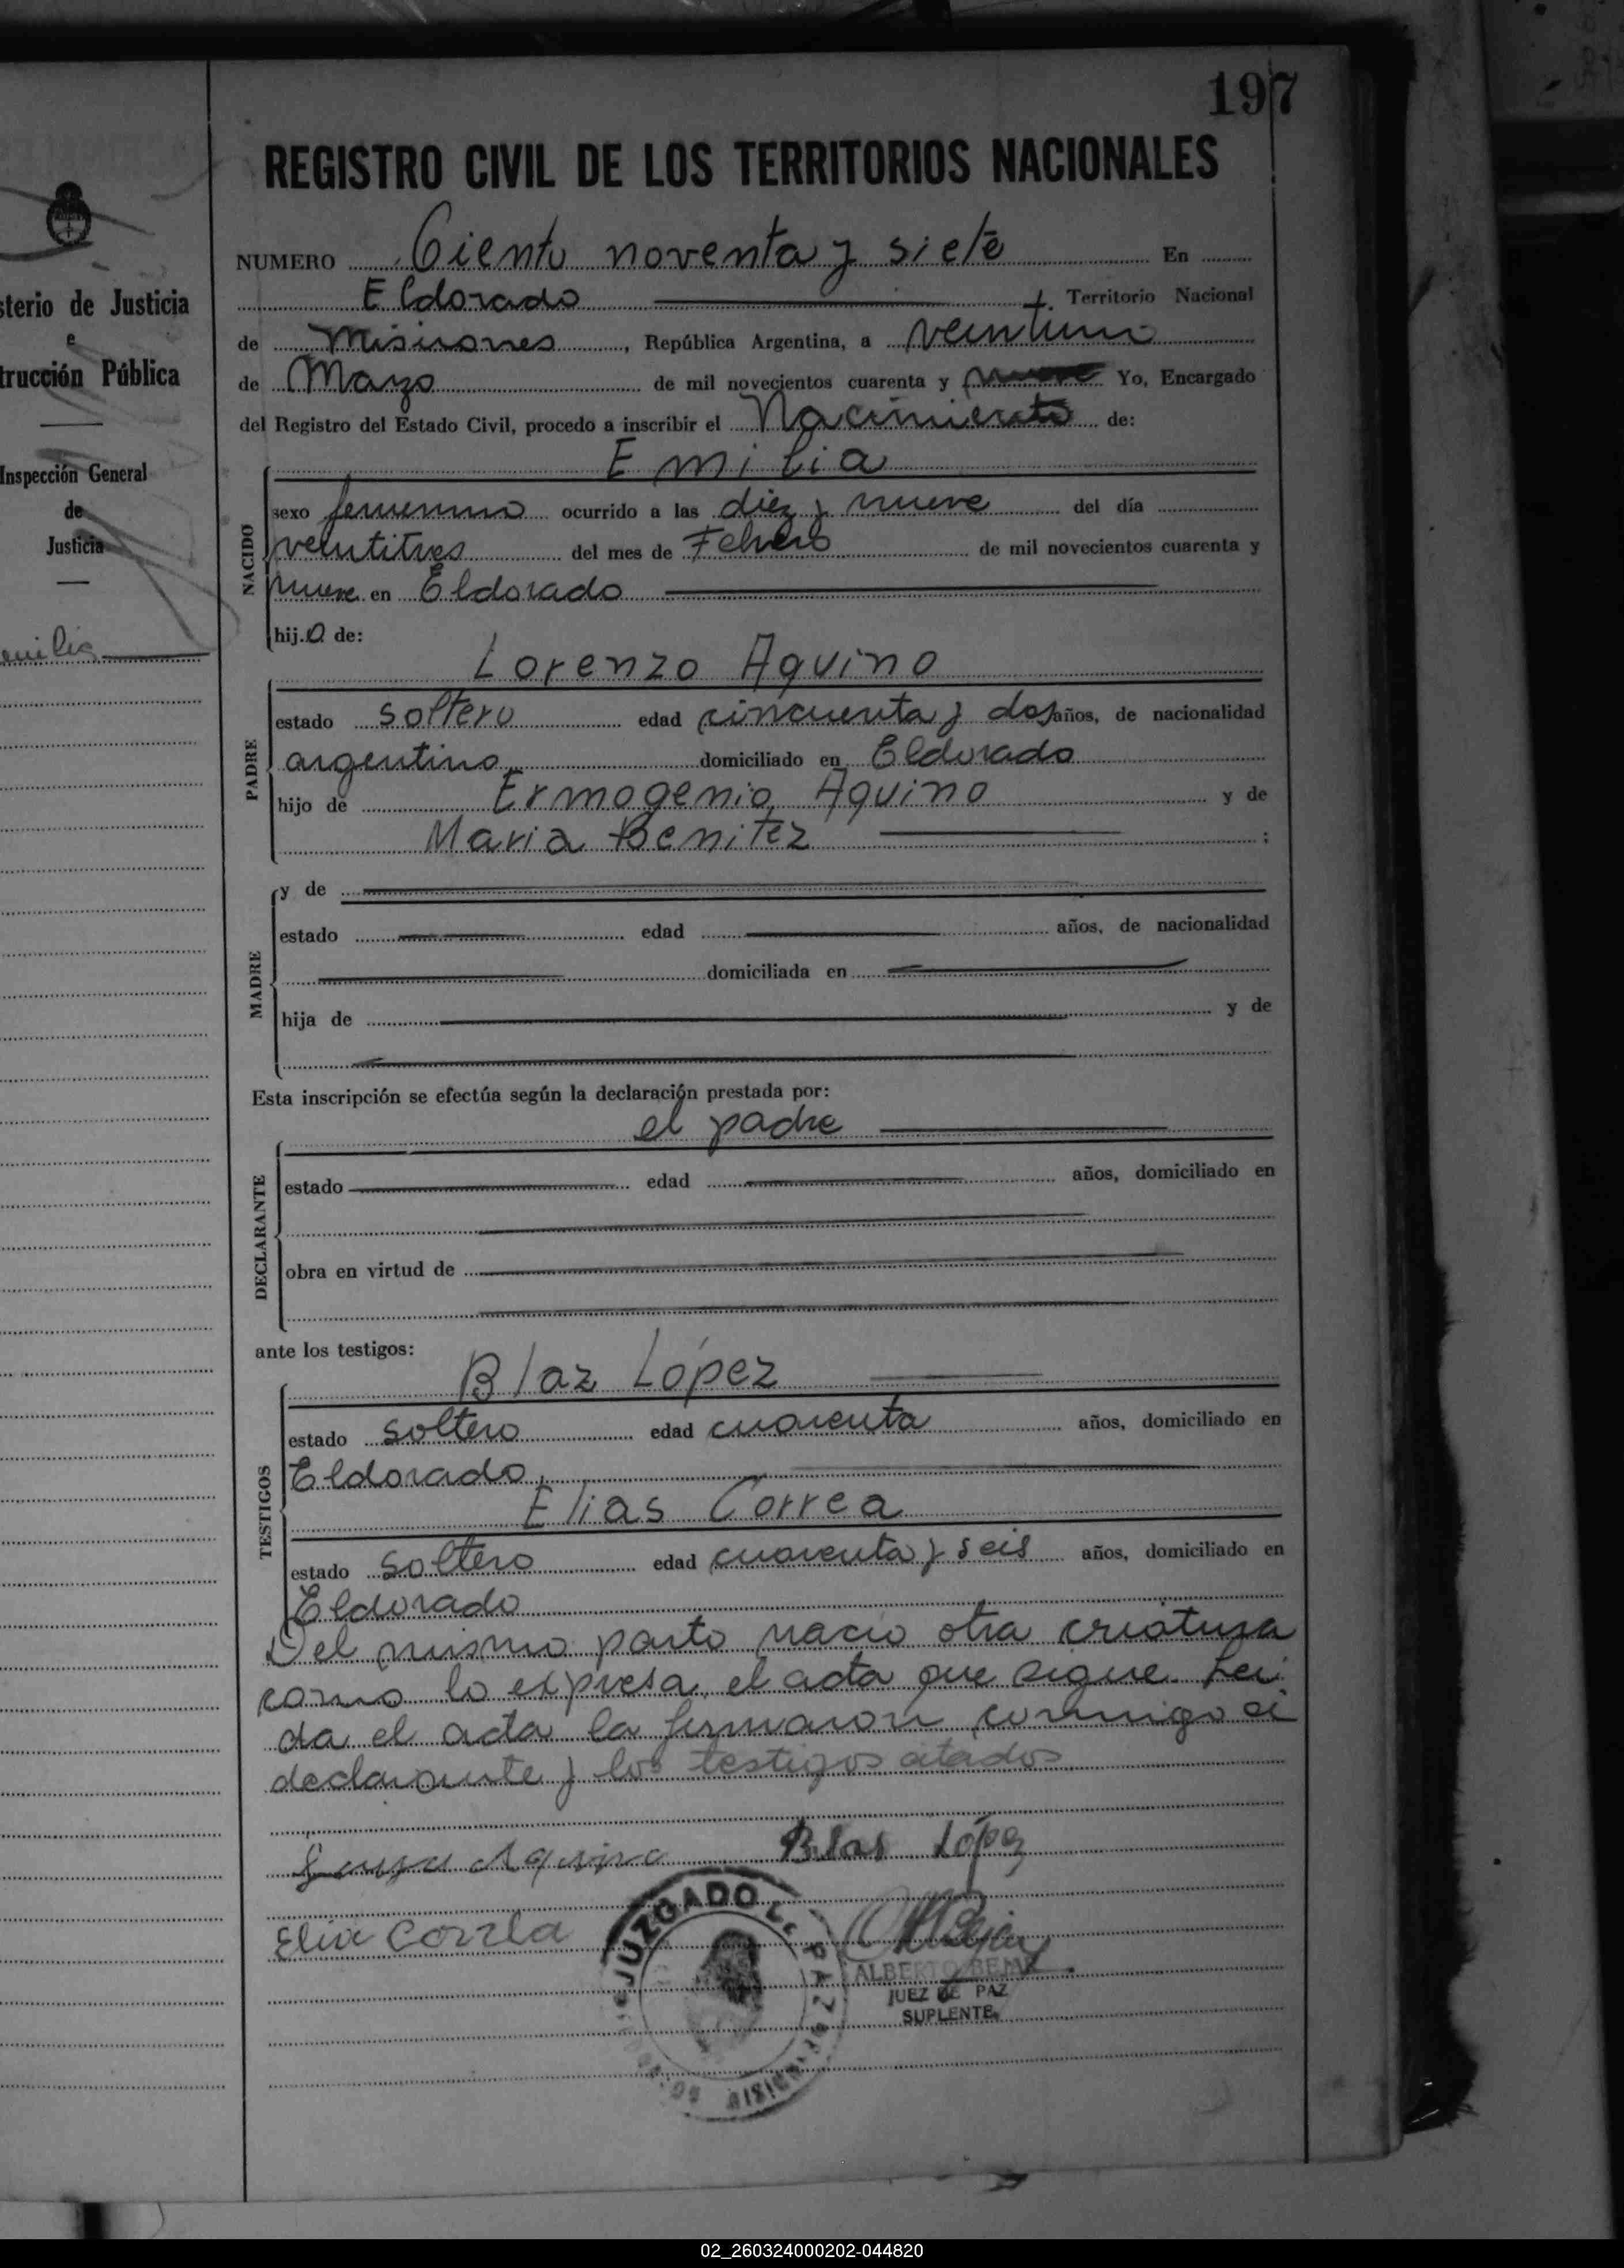 197
REGISTRO CIVIL DE LOS TERRITORIOS NACIONALES
NUMERO Ciento noventa y siete En
Eldorado Territorio Nacional
de Misiones, República Argentina, a veintiuno
de Marzo de mil novecientos cuarenta y nueve Yo, Encargado
del Registro del Estado Civil, procedo a inscribir el Nacimiento de:
Emilia
NACIDO
sexo femenino ocurrido a las diez y nueve del día
veintitres del mes de Febrero de mil novecientos cuarenta y
nueve en Eldorado
hija de:
Lorenzo Aquino
PADRE
estado soltero edad cincuenta y dos años, de nacionalidad
argentino domiciliado en Eldorado
hijo de Ermogenio Aquino y de
Maria Benitez ;
MADRE
y de
estado edad años, de nacionalidad
domiciliada en
hija de y de
Esta inscripción se efectúa según la declaración prestada por:
el padre
DECLARANTE
estado edad años, domiciliado en
obra en virtud de
ante los testigos:
Blaz López
TESTIGOS
estado soltero edad cuarenta años, domiciliado en
Eldorado
Elias Correa
estado soltero edad cuarenta y seis años, domiciliado en
Eldorado
Del mismo parto nacio otra criatura
como lo expresa el acta que sigue. Lei
da el acta la firmaron conmigo el
declarante y los testigos citados
Aquino Blas López
JUZGADO
ALBERTO BEJAR
JUEZ DE PAZ
SUPLENTE
sterio de Justicia
e
trucción Pública
Inspección General
de
Justicia
emilia
02_260324000202-044820